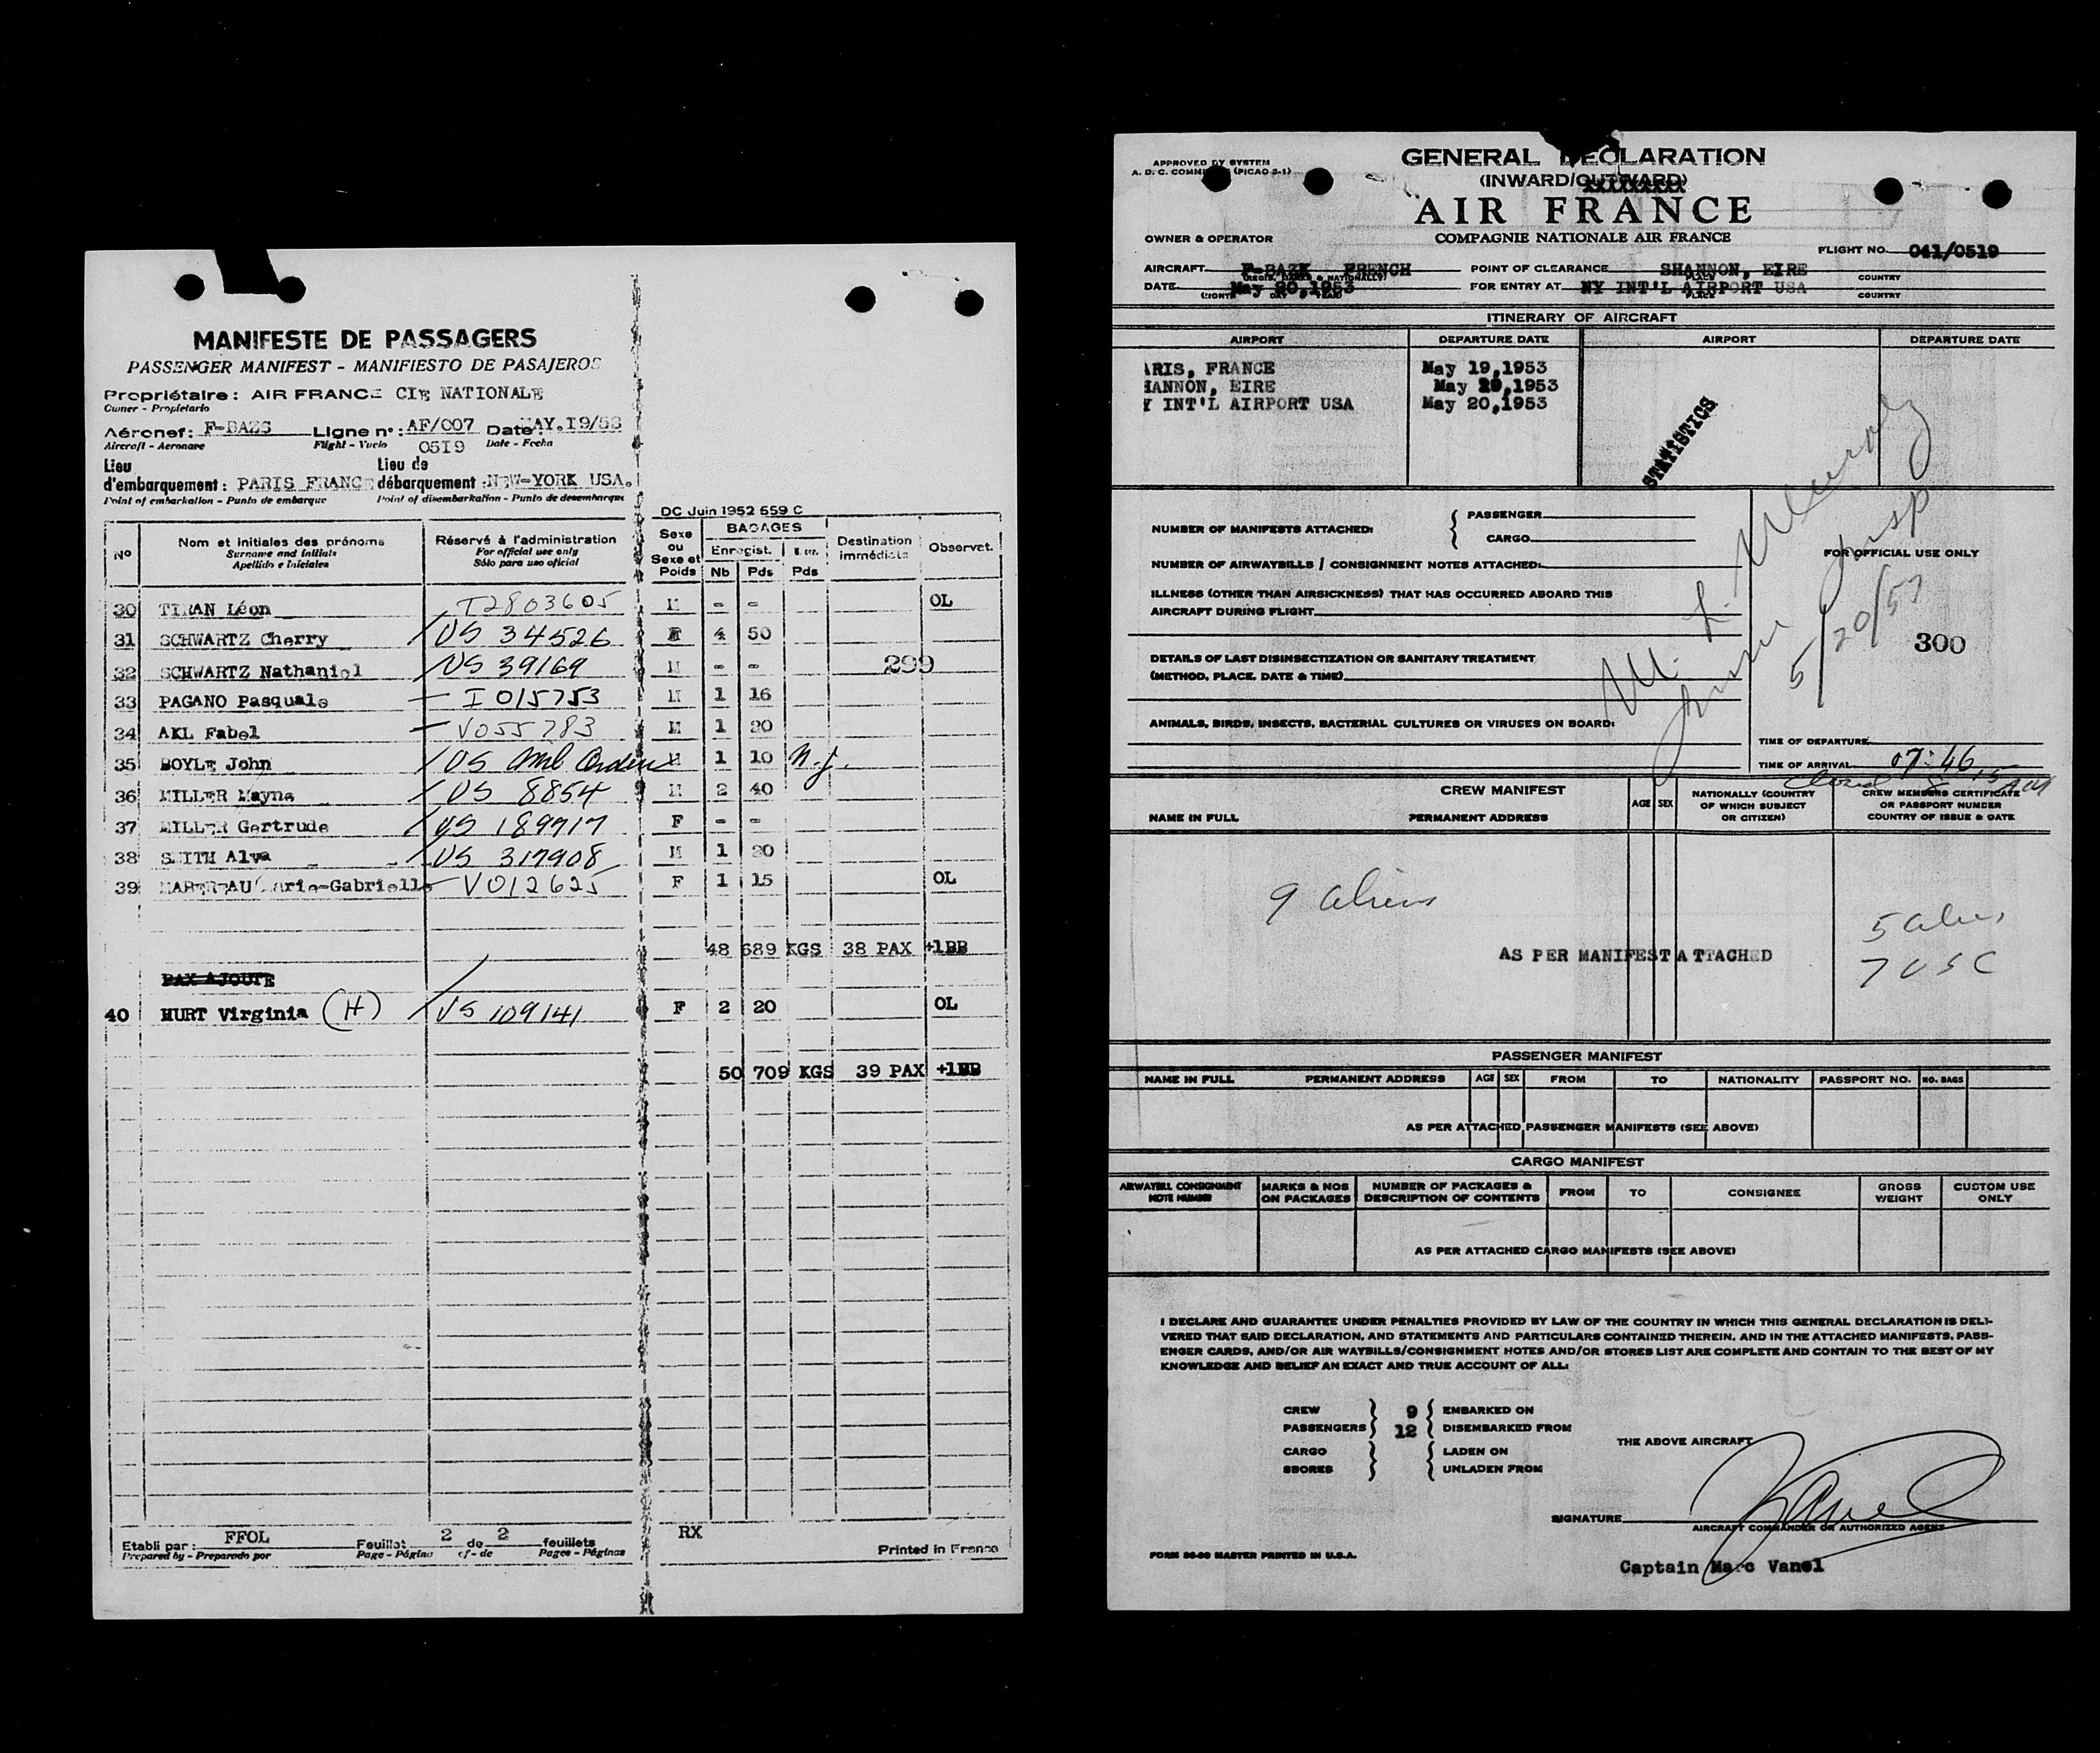 MANIFESTE DE PASSAGERS
PASSENGER MANIFEST - MANIFIESTO DE PASAJEROS
Propriétaire : AIR FRANCE CIE NATIONALE
Owner - Propietario
Aéronef : F-BAZS Ligne n° : AF/007 Date MAY.19/53
Aircraft - Aeronave Flight - Vuelo 0519 Date - Fecha
Lieu d'embarquement : PARIS FRANCE Lieu de débarquement : NEW-YORK USA.
Point of embarkation - Punto de embarque Point of disembarkation - Punto de desembarque
DC Juin 1952 559 C
N° Nom et initiales des prénoms Réservé à l'administration Sexe ou Sexe et Poids BAGAGES Destination immédiate Observat.
Surname and initials For official use only Enregist.
Apellido e iniciales Sólo para uso oficial Nb Pds Pds
30 TIRAN Léon I2803605 M - - OL
31 SCHWARTZ Cherry US 34526 4 50
32 SCHWARTZ Nathaniel US 39169 M - - 299
33 PAGANO Pasquale I 015753 M 1 16
34 AKL Fabel V055783 M 1 20
35 BOYLE John US M 1 10 N.J.
36 MILLER Mayne US 8854 M 2 40
37 MILLER Gertrude US 189717 F - -
38 SMITH Alva US 317908 M 1 20
39 Marie-Gabrielle V012625 F 1 15 OL
48 689 KGS 38 PAX +1BB
PAX AJOUTE
40 HURT Virginia (H) US 109141 F 2 20 OL
50 709 KGS 39 PAX +1BB
Etabli par : FFOL Feuillet 2 de 2 feuillets RX
Prepared by - Preparado por Page - Página of - de Pages - Páginas Printed in France
APPROVED BY SYSTEM
GENERAL DECLARATION
(INWARD/OUTWARD)
AIR FRANCE
OWNER & OPERATOR COMPAGNIE NATIONALE AIR FRANCE
FLIGHT NO. 041/0519
AIRCRAFT F-BAZK FRENCH POINT OF CLEARANCE SHANNON, EIRE
(REGIS. MARKS & NATIONALITY) PLACE COUNTRY
DATE May 20,1953 FOR ENTRY AT NY INT'L AIRPORT USA
(MONTH DAY & YEAR) PLACE COUNTRY
ITINERARY OF AIRCRAFT
AIRPORT DEPARTURE DATE AIRPORT DEPARTURE DATE
ARIS, FRANCE May 19,1953
HANNON, EIRE May 20,1953
Y INT'L AIRPORT USA May 20,1953
STATISTICS
NUMBER OF MANIFESTS ATTACHED: PASSENGER
CARGO
FOR OFFICIAL USE ONLY
NUMBER OF AIRWAYBILLS / CONSIGNMENT NOTES ATTACHED:
ILLNESS (OTHER THAN AIRSICKNESS) THAT HAS OCCURRED ABOARD THIS
AIRCRAFT DURING FLIGHT
300
DETAILS OF LAST DISINSECTIZATION OR SANITARY TREATMENT
(METHOD, PLACE, DATE & TIME)
ANIMALS, BIRDS, INSECTS, BACTERIAL CULTURES OR VIRUSES ON BOARD:
Insp
5/20/53
TIME OF DEPARTURE
TIME OF ARRIVAL 07:46
CREW MANIFEST AGE SEX NATIONALLY (COUNTRY OF WHICH SUBJECT OR CITIZEN) CREW MEMBERS CERTIFICATE OR PASSPORT NUMBER COUNTRY OF ISSUE & DATE
NAME IN FULL PERMANENT ADDRESS
9 aliens
5 aliens
AS PER MANIFEST ATTACHED
7 USC
PASSENGER MANIFEST
NAME IN FULL PERMANENT ADDRESS AGE SEX FROM TO NATIONALITY PASSPORT NO. NO. BAGS
AS PER ATTACHED PASSENGER MANIFESTS (SEE ABOVE)
CARGO MANIFEST
AIRWAYBILL CONSIGNMENT NOTE NUMBER MARKS & NOS ON PACKAGES NUMBER OF PACKAGES & DESCRIPTION OF CONTENTS FROM TO CONSIGNEE GROSS WEIGHT CUSTOM USE ONLY
AS PER ATTACHED CARGO MANIFESTS (SEE ABOVE)
I DECLARE AND GUARANTEE UNDER PENALTIES PROVIDED BY LAW OF THE COUNTRY IN WHICH THIS GENERAL DECLARATION IS DELI-
VERED THAT SAID DECLARATION, AND STATEMENTS AND PARTICULARS CONTAINED THEREIN, AND IN THE ATTACHED MANIFESTS, PASS-
ENGER CARDS, AND/OR AIR WAYBILLS/CONSIGNMENT NOTES AND/OR STORES LIST ARE COMPLETE AND CONTAIN TO THE BEST OF MY
KNOWLEDGE AND BELIEF AN EXACT AND TRUE ACCOUNT OF ALL:
CREW 9 EMBARKED ON
PASSENGERS 12 DISEMBARKED FROM
THE ABOVE AIRCRAFT
CARGO LADEN ON
SRORES UNLADEN FROM
SIGNATURE
AIRCRAFT COMMANDER OR AUTHORIZED AGENT
FORM 36-90 MASTER PRINTED IN U.S.A.
Captain Marc Vanel